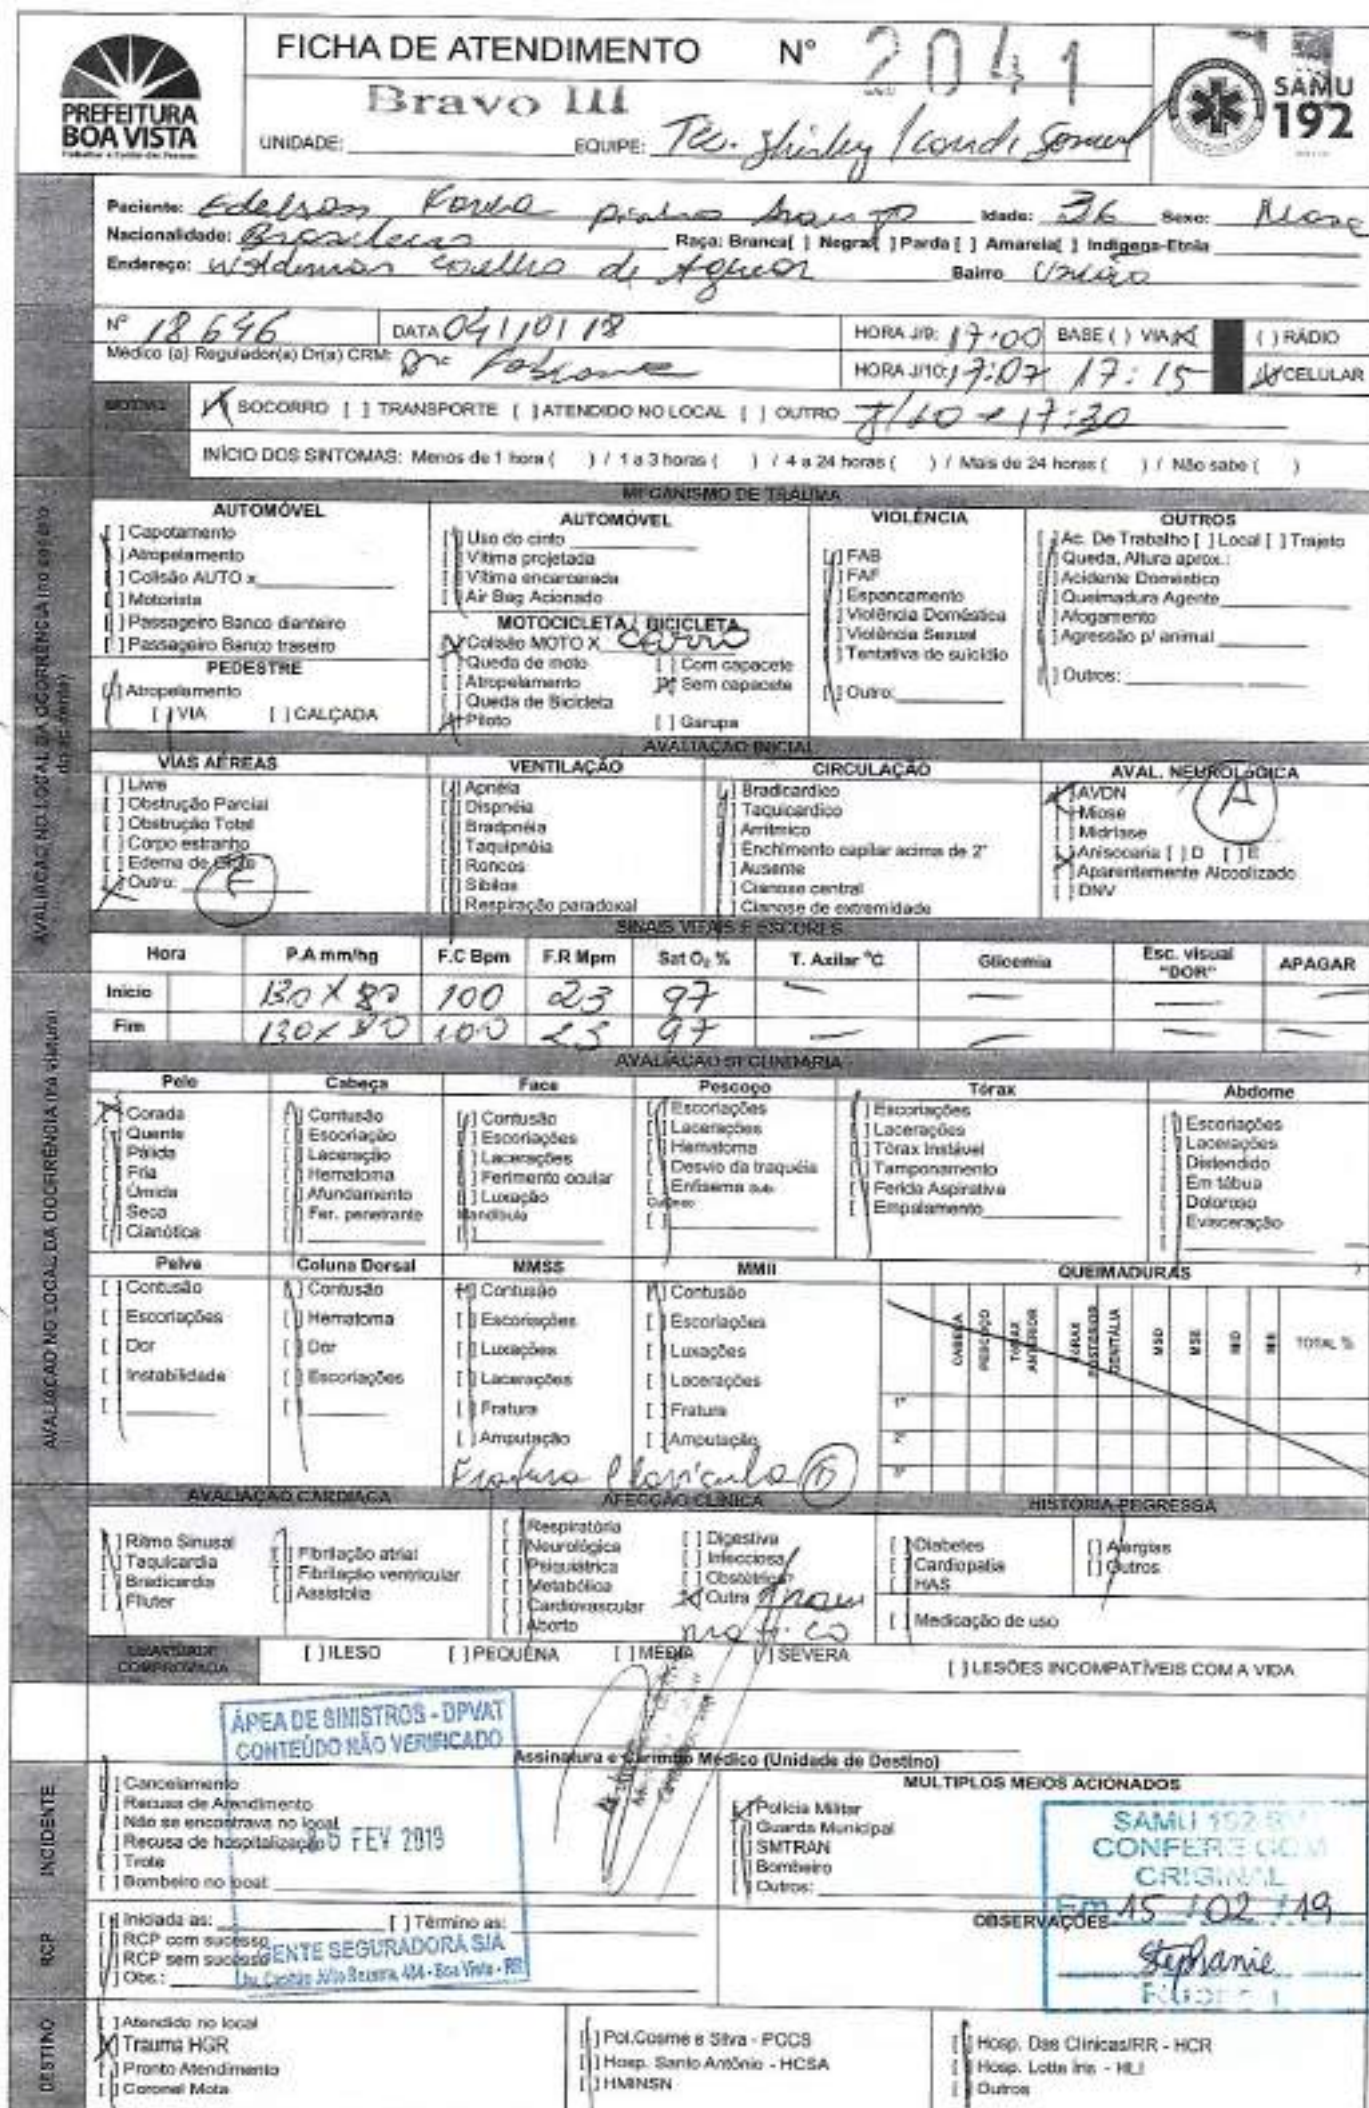 PREFEITURA
BOA VISTA
FICHA DE ATENDIMENTO Nº 2041
SAMU
192
Bravo III
UNIDADE: EQUIPE: Tec. Shirley / cond.
Paciente: Edelson Idade: 36 Sexo: Masc
Nacionalidade: Brasileira Raça: Branca[ ] Negra[ ] Parda [ ] Amarela[ ] Indígena-Etnia
Endereço: Waldemar Coelho de Aguiar Bairro União
Nº 18646 DATA 04/10/18 HORA J/9: 17:00 BASE ( ) VIA (X) ( ) RÁDIO
Médico (a) Regulador(a) Dr(a) CRM: Dra HORA J/10: 17:07 17:15 (X) CELULAR
MOTIVO [X] SOCORRO [ ] TRANSPORTE [ ] ATENDIDO NO LOCAL [ ] OUTRO J/10 17:30
INÍCIO DOS SINTOMAS: Menos de 1 hora ( ) / 1 a 3 horas ( ) / 4 a 24 horas ( ) / Mais de 24 horas ( ) / Não sabe ( )
AVALIAÇÃO NO LOCAL DA OCORRÊNCIA
MECANISMO DE TRAUMA
AUTOMÓVEL
[ ] Capotamento
[ ] Atropelamento
[ ] Colisão AUTO x
[ ] Motorista
[ ] Passageiro Banco dianteiro
[ ] Passageiro Banco traseiro
PEDESTRE
[ ] Atropelamento
[ ] VIA [ ] CALÇADA
AUTOMÓVEL
[ ] Uso do cinto
[ ] Vítima projetada
[ ] Vítima encarcerada
[ ] Air Bag Acionado
MOTOCICLETA / BICICLETA
[X] Colisão MOTO X carro
[ ] Queda de moto [ ] Com capacete
[ ] Atropelamento [X] Sem capacete
[ ] Queda de Bicicleta
[X] Piloto [ ] Garupa
VIOLÊNCIA
[ ] FAB
[ ] FAF
[ ] Espancamento
[ ] Violência Doméstica
[ ] Violência Sexual
[ ] Tentativa de suicídio
[ ] Outro:
OUTROS
[ ] Ac. De Trabalho [ ] Local [ ] Trajeto
[ ] Queda, Altura aprox.:
[ ] Acidente Doméstico
[ ] Queimadura Agente
[ ] Afogamento
[ ] Agressão p/ animal
[ ] Outros:
AVALIAÇÃO INICIAL
VIAS AÉREAS
[ ] Livre
[ ] Obstrução Parcial
[ ] Obstrução Total
[ ] Corpo estranho
[ ] Edema de Glote
[X] Outro:
VENTILAÇÃO
[ ] Apnéia
[ ] Dispnéia
[ ] Bradpnéia
[ ] Taquipnéia
[ ] Roncos
[ ] Sibilos
[ ] Respiração paradoxal
CIRCULAÇÃO
[ ] Bradicardico
[ ] Taquicardico
[ ] Arritmico
[ ] Enchimento capilar acima de 2"
[ ] Ausente
[ ] Cianose central
[ ] Cianose de extremidade
AVAL. NEUROLÓGICA
[X] AVDN A
[ ] Miose
[ ] Midríase
[ ] Anisocoria [ ] D [ ] E
[ ] Aparentemente Alcoolizado
[ ] DNV
SINAIS VITAIS E ESCORES
Hora P.A mm/hg F.C Bpm F.R Mpm Sat O₂ % T. Axilar °C Glicemia Esc. visual "DOR" APAGAR
Início 130 X 80 100 23 97 — — — —
Fim 130 x 80 100 23 97 — — — —
AVALIAÇÃO NO LOCAL DA OCORRÊNCIA (na viatura)
AVALIAÇÃO SECUNDÁRIA
Pele
[X] Corada
[ ] Quente
[ ] Pálida
[ ] Fria
[ ] Úmida
[ ] Seca
[ ] Cianótica
Cabeça
[ ] Contusão
[ ] Escoriação
[ ] Laceração
[ ] Hematoma
[ ] Afundamento
[ ] Fer. penetrante
Face
[ ] Contusão
[ ] Escoriações
[ ] Lacerações
[ ] Ferimento ocular
[ ] Luxação
Mandíbula
[ ]
Pescoço
[ ] Escoriações
[ ] Lacerações
[ ] Hematoma
[ ] Desvio da traquéia
[ ] Enfisema
[ ]
Tórax
[ ] Escoriações
[ ] Lacerações
[ ] Tórax Instável
[ ] Tamponamento
[ ] Ferida Aspirativa
[ ] Empalamento
Abdome
[ ] Escoriações
[ ] Lacerações
[ ] Distendido
[ ] Em tábua
[ ] Doloroso
[ ] Evisceração
Pelve
[ ] Contusão
[ ] Escoriações
[ ] Dor
[ ] Instabilidade
[ ]
Coluna Dorsal
[ ] Contusão
[ ] Hematoma
[ ] Dor
[ ] Escoriações
[ ]
MMSS
[ ] Contusão
[ ] Escoriações
[ ] Luxações
[ ] Lacerações
[ ] Fratura
[ ] Amputação
MMII
[ ] Contusão
[ ] Escoriações
[ ] Luxações
[ ] Lacerações
[ ] Fratura
[ ] Amputação
Fratura Clavicula
QUEIMADURAS
CABEÇA PESCOÇO TÓRAX ANTERIOR TÓRAX POSTERIOR GENITÁLIA MSD MSE MID MIE TOTAL %
1º
2º
3º
AVALIAÇÃO CARDIACA
[ ] Ritmo Sinusal
[ ] Taquicardia
[ ] Bradicardia
[ ] Fluter
[ ] Fibrilação atrial
[ ] Fibrilação ventricular
[ ] Assistolia
AFECÇÃO CLÍNICA
[ ] Respiratória
[ ] Neurológica
[ ] Psiquiátrica
[ ] Metabólica
[ ] Cardiovascular
[ ] Aborto
[ ] Digestiva
[ ] Infecciosa
[ ] Obstétrica?
[X] Outra Traumático
HISTÓRIA PEGRESSA
[ ] Diabetes
[ ] Cardiopatia
[ ] HAS
[ ] Medicação de uso
[ ] Alergias
[ ] Outros
GRAVIDADE COMPROVADA [ ] ILESO [ ] PEQUENA [ ] MÉDIA [ ] SEVERA [ ] LESÕES INCOMPATÍVEIS COM A VIDA
ÁREA DE SINISTROS - DPVAT
CONTEÚDO NÃO VERIFICADO
Assinatura e Carimbo Médico (Unidade de Destino)
INCIDENTE
[ ] Cancelamento
[ ] Recusa de Atendimento
[ ] Não se encontrava no local
[ ] Recusa de hospitalização
[ ] Trote
[ ] Bombeiro no local:
FEV 2019
MULTIPLOS MEIOS ACIONADOS
[ ] Policia Militar
[ ] Guarda Municipal
[ ] SMTRAN
[ ] Bombeiro
[ ] Outros:
SAMU 192
CONFERE COM
ORIGINAL
Em 15 / 02 / 19
Stephanie
RCP
[ ] Iniciada as: [ ] Término as:
[ ] RCP com sucesso
[ ] RCP sem sucesso
[ ] Obs.:
GENTE SEGURADORA S/A
Av. Capitão Júlio Bezerra, 484 - Boa Vista - RR
OBSERVAÇÕES
DESTINO
[ ] Atendido no local
[X] Trauma HGR
[ ] Pronto Atendimento
[ ] Coronel Mota
[ ] Pol.Cosme e Silva - PCCS
[ ] Hosp. Santo Antônio - HCSA
[ ] HMINSN
[ ] Hosp. Das Clínicas/RR - HCR
[ ] Hosp. Lotte Iris - HLI
[ ] Outros